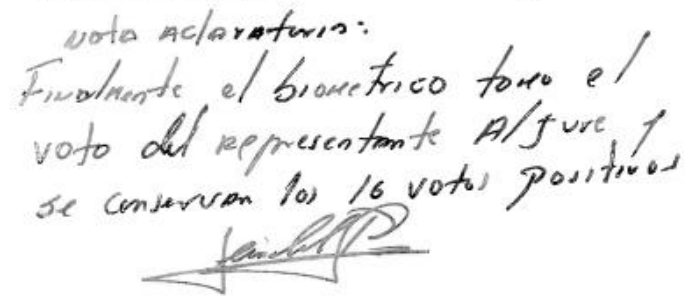 Nota Aclaratoria:
Finalmente el biometrico tomo el
voto del representante Aljure y
se conservan los 16 votos positivos